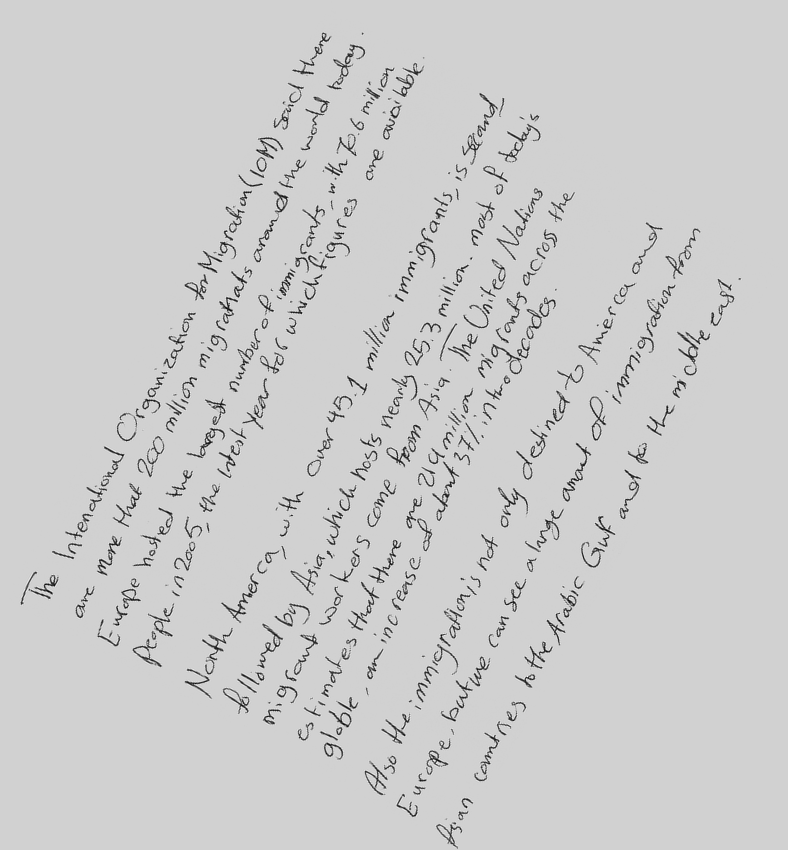 The Intenational Organization for Migration (IOM) said there
are more that 200 million migratnats around the world today.
Europe hosted the largest number of immigrants, with 70.6 million
People in 2005, the latest year for which figures are available.
North America, with over 45.1 million immigrants, is second
followed by Asia, which hosts nearly 25.3 million. most of today's
migrant workers come from Asia. The United Nations
estimates that there are 214 million migrants across the
globle, an increase of about 37% in two decades.
Also the immigration is not only destined to America and
Europe, but we can see a large amont of immigration from
Asian countries to the Arabic Gulf and to the middle east.